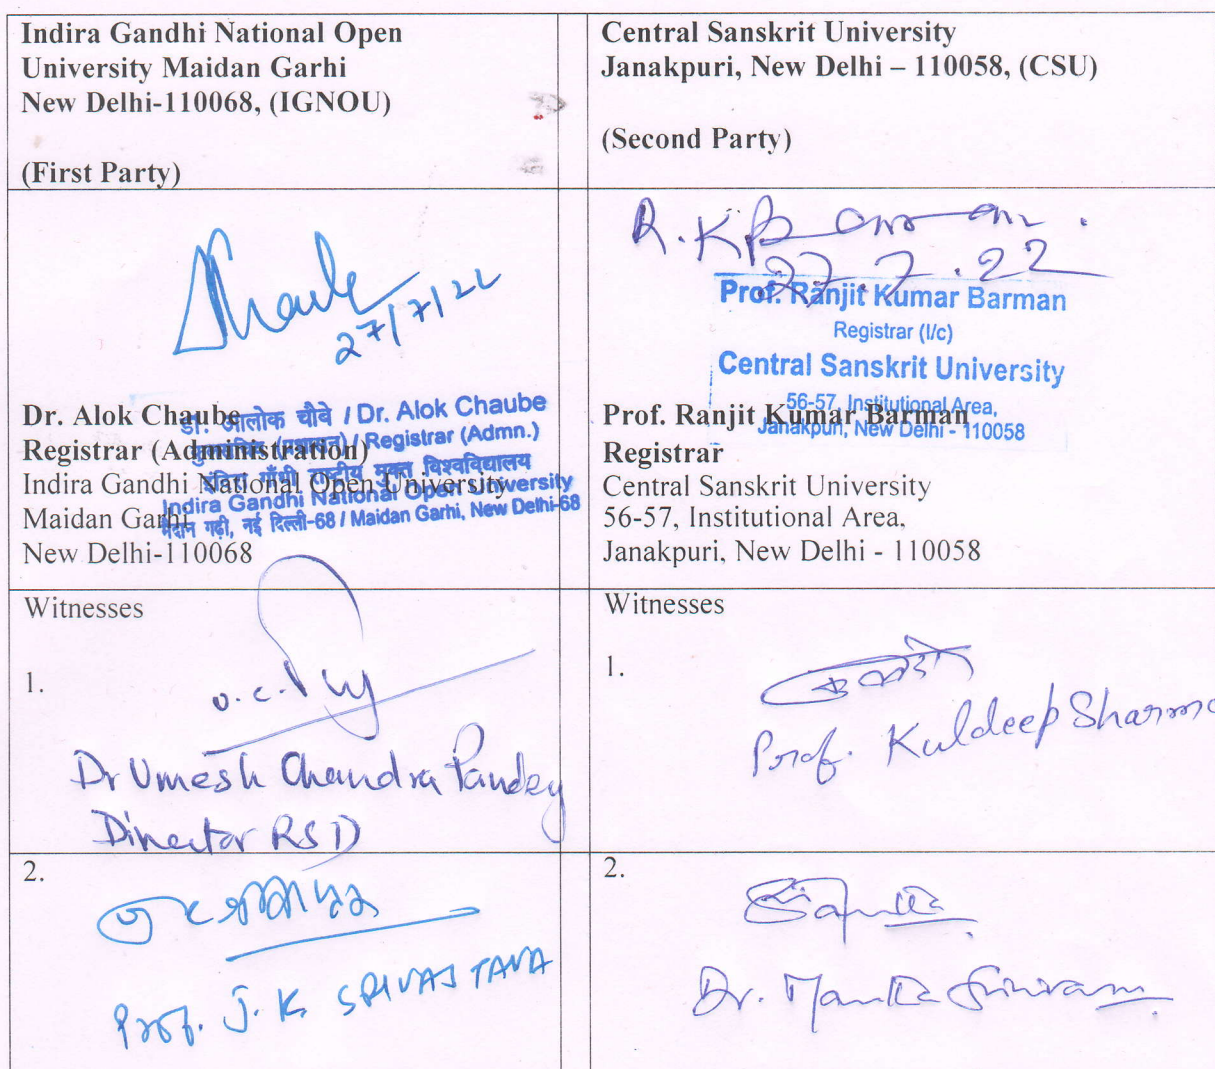 Indira Gandhi National Open
University Maidan Garhi
New Delhi-110068, (IGNOU)
(First Party)
Central Sanskrit University
Janakpuri, New Delhi – 110058, (CSU)
(Second Party)
Chaube
27/7/22
Dr. Alok Chaube
Registrar (Administration)
Indira Gandhi National Open University
Maidan Garhi
New Delhi-110068
डा. आलोक चौबे / Dr. Alok Chaube
कुलसचिव (प्रशासन) / Registrar (Admn.)
इंदिरा गाँधी राष्ट्रीय मुक्त विश्वविद्यालय
Indira Gandhi National Open University
मैदान गढ़ी, नई दिल्ली-68 / Maidan Garhi, New Delhi-68
R.K Barman.
27.7.22
Prof. Ranjit Kumar Barman
Registrar (I/c)
Central Sanskrit University
56-57, Institutional Area,
Janakpuri, New Delhi - 110058
Prof. Ranjit Kumar Barman
Registrar
Central Sanskrit University
56-57, Institutional Area,
Janakpuri, New Delhi - 110058
Witnesses
1.
Dr Umesh Chandra Pandey
Director RSD
Witnesses
1.
Prof. Kuldeep Sharma
2.
Prof. J. K. SRIVASTAVA
2.
Dr.